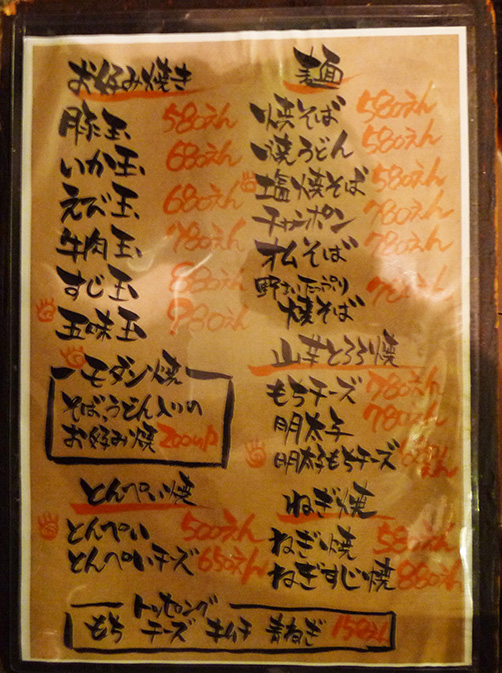 お好み焼き
豚玉 580えん
いか玉 680えん
えび玉 680えん
牛肉玉 780えん
すじ玉 880えん
五味玉 980えん
モダン焼
そば、うどん入りの
お好み焼 200up
とんぺい焼
とんぺい 500えん
とんぺいチーズ 650えん
麺
焼そば 580えん
焼うどん 580えん
塩焼そば 580えん
チャンポン 780えん
オムそば 780えん
野さいたっぷり
焼そば
山芋とろろ焼
もちチーズ 780えん
明太子 780えん
明太子もちチーズ
ねぎ焼
ねぎ焼 580えん
ねぎすじ焼 880えん
トッピング
もち チーズ キムチ 青ねぎ 150えん